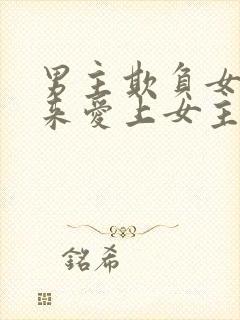 男主欺負女
來愛上女主
銘希